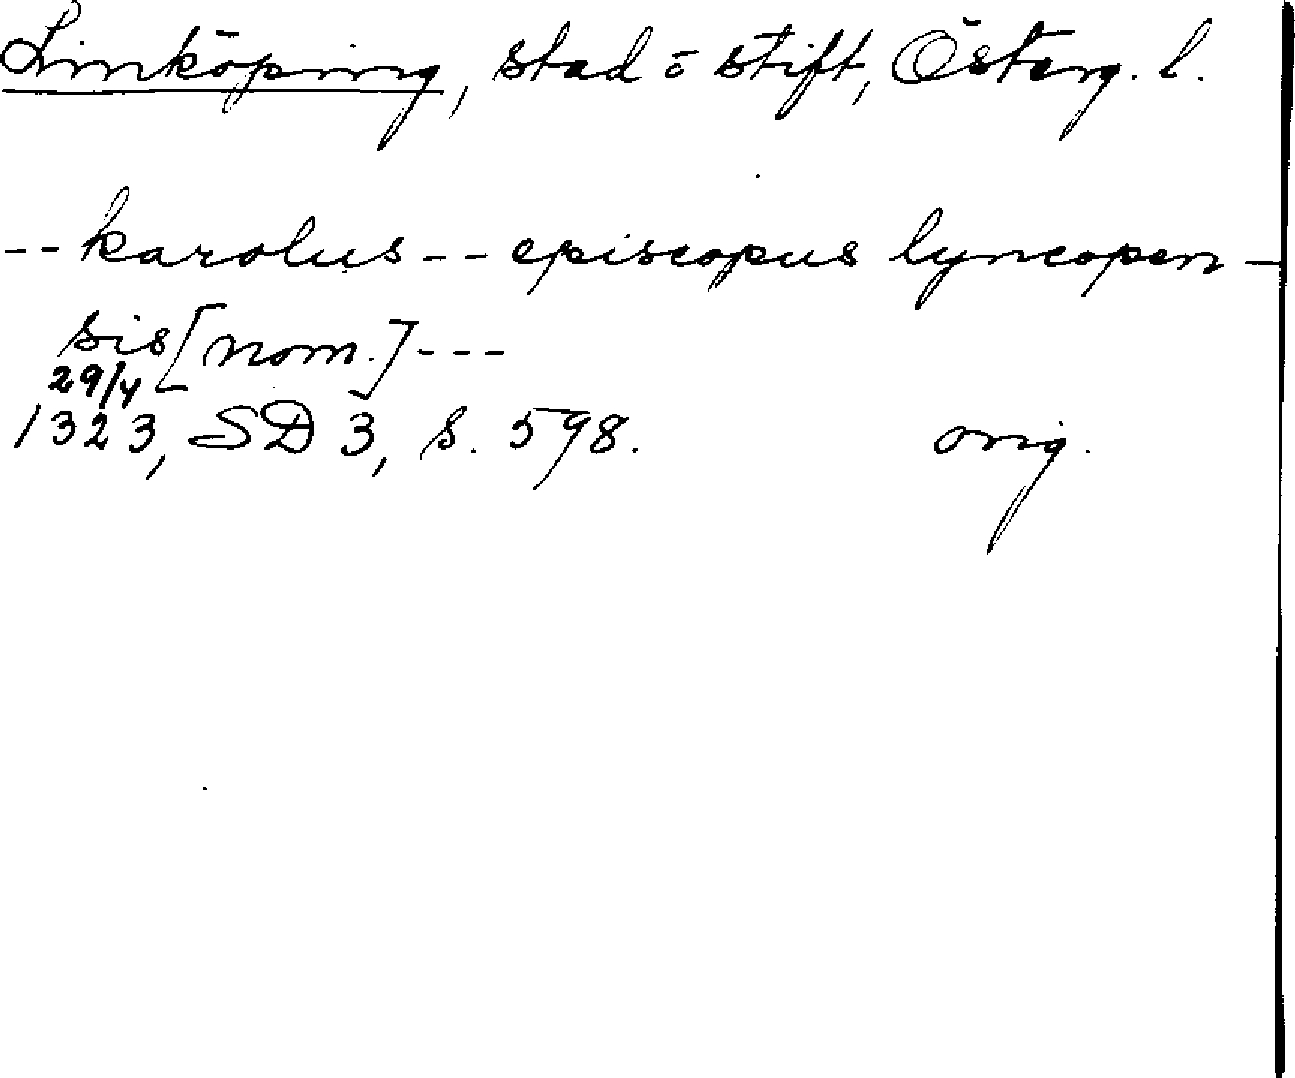 Linköping, stad ö stift, Österg. l.
-- karolus -- episcopus lyncopen-
sis [nom.] ---
29/4
1323, SD 3, s. 598. orig.